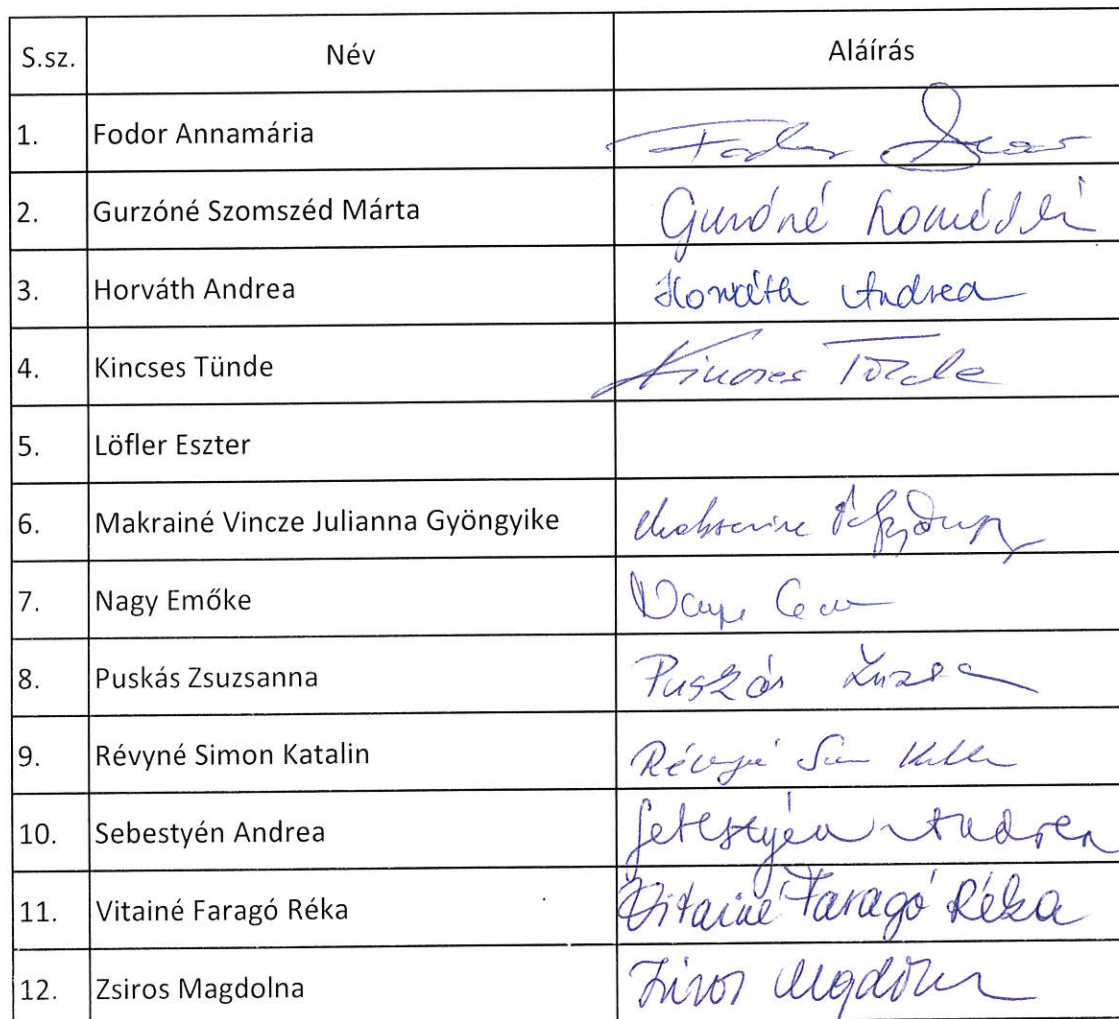 S.sz. Név Aláírás
1. Fodor Annamária Fodor
2. Gurzóné Szomszéd Márta Gurzóné
3. Horváth Andrea Horváth Andrea
4. Kincses Tünde Kincses Tünde
5. Löfler Eszter
6. Makrainé Vincze Julianna Gyöngyike
7. Nagy Emőke
8. Puskás Zsuzsanna Puskás Zsuzsa
9. Révyné Simon Katalin Révyné
10. Sebestyén Andrea Sebestyén Andrea
11. Vitainé Faragó Réka Vitainé Faragó Réka
12. Zsiros Magdolna